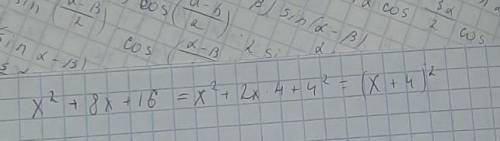 sin (α-β / 2) cos (α-β / 2) β) sin (α-β) α cos 5α / 2 cos
sin α-β) cos (α-β 2 si α
x² + 8x + 16 = x² + 2x · 4 + 4² = (x + 4)²